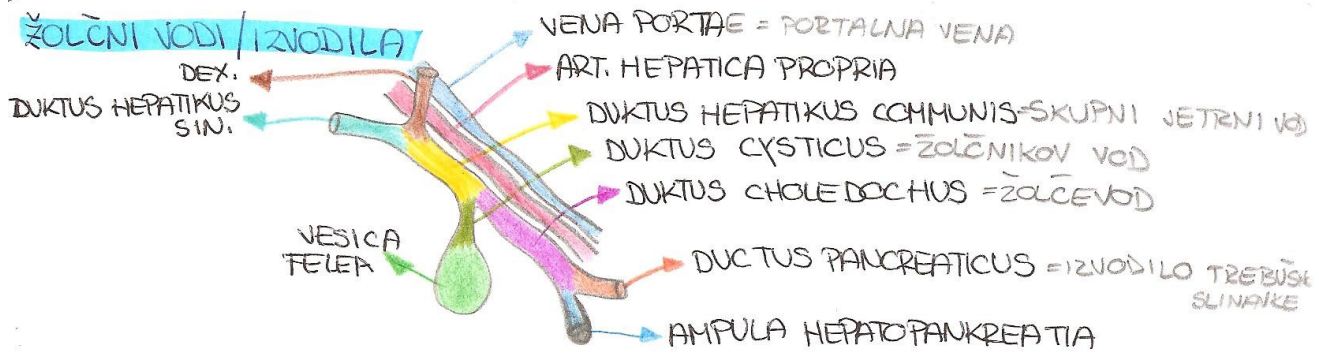 ŽOLČNI VODI/IZVODILA
DEX.
DUKTUS HEPATIKUS
SIN.
VESICA
FELEA
VENA PORTAE = PORTALNA VENA
ART. HEPATICA PROPRIA
DUKTUS HEPATIKUS COMMUNIS=SKUPNI JETRNI VOD
DUKTUS CYSTICUS = ŽOLČNIKOV VOD
DUKTUS CHOLEDOCHUS = ŽOLČEVOD
DUCTUS PANCREATICUS = IZVODILO TREBUŠE
SLINAVKE
AMPULA HEPATOPANKREATIA